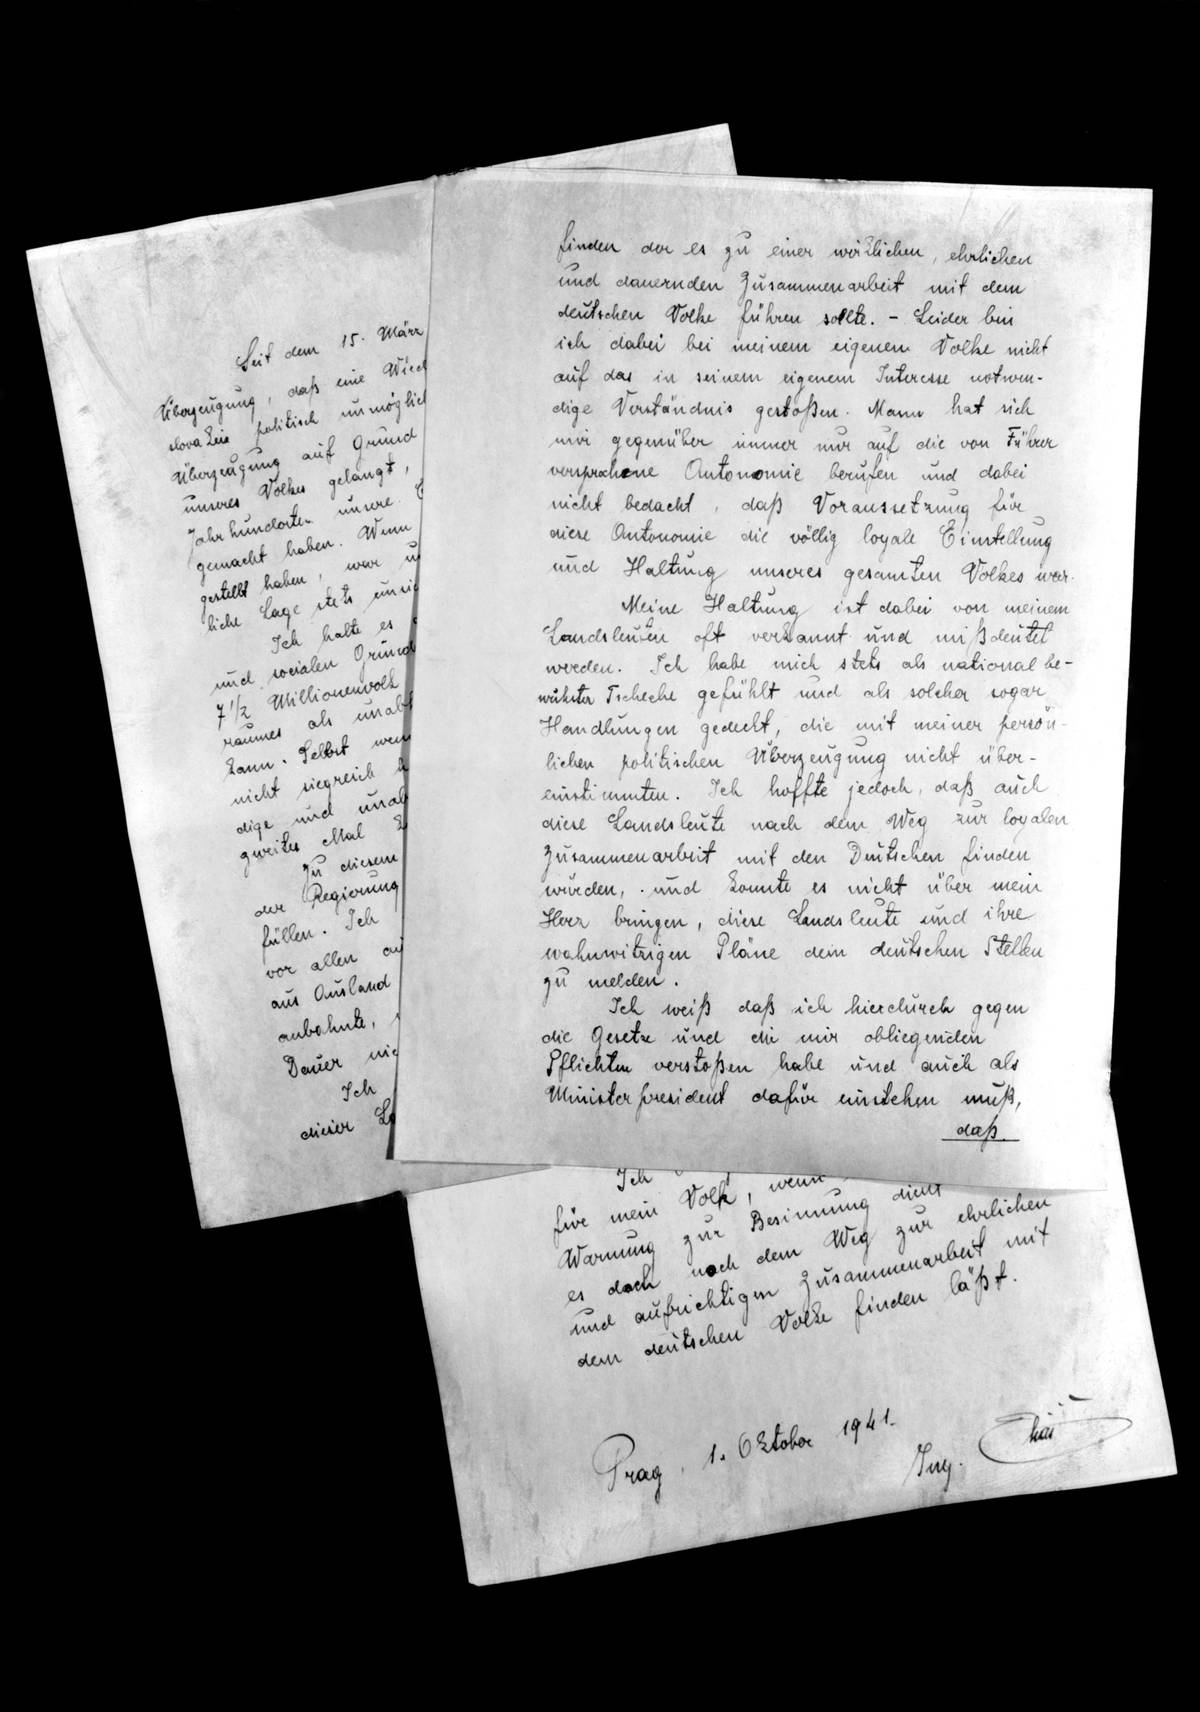 Seit dem 15. März
Überzeugung, daß eine Wied
slovakei politisch unmöglich
Überzeugung auf Grund
unseres Volkes gelangt,
Jahrhunderten unsere
gemacht haben. Wenn
gestellt haben, war
liche Lage stets
Ich halte es
und socialen Gründ
7 1/2 Millionenvolk
raumes als unab
kann. Selbst wenn
nicht siegreich
dige und unab
zweites Mal
Zu diesem
der Regierung
füllen. Ich
vor allen
aus Ausland
anbahnte,
Dauer nic
Ich
dieser
finden der es zu einer wirklichen, ehrlichen
und dauernden Zusammenarbeit mit dem
deutschen Volke führen sollte. - Leider bin
ich dabei bei meinem eigenem Volke nicht
auf das in seinem eigenem Interesse notwen-
dige Verständnis gestoßen. Mann hat sich
mir gegenüber immer nur auf die von Führer
versprochene Autonomie berufen und dabei
nicht bedacht, daß Voraussetzung für
diese Autonomie die völlig loyale Einstellung
und Haltung unseres gesamten Volkes war.
Meine Haltung ist dabei von meinem
Landsleuten oft verkannt und mißdeutet
worden. Ich habe mich stets als national be-
wußter Tscheche gefühlt und als solcher sogar
Handlungen gedeckt, die mit meiner persön-
lichen politischen Überzeugung nicht über-
einstimmten. Ich hoffte jedoch, daß auch
diese Landsleute nach dem Weg zur loyalen
Zusammenarbeit mit den Deutschen finden
würden, und konnte es nicht über mein
Herz bringen, diese Landsleute und ihre
wahnwitzigen Pläne dem deutschen Stellen
zu melden.
Ich weiß daß ich hierdurch gegen
die Gesetze und die mir obliegenden
Pflichten verstoßen habe und auch als
Ministerpresident dafür einstehen muß,
daß
Ich
für mein Volk, wenn
Warnung zur Besinnung dient
es doch nach dem Weg zur ehrlichen
und aufrichtigen Zusammenarbeit mit
dem deutschen Volke finden läßt.
Prag, 1. Oktober 1941.
Ing. Eliáš